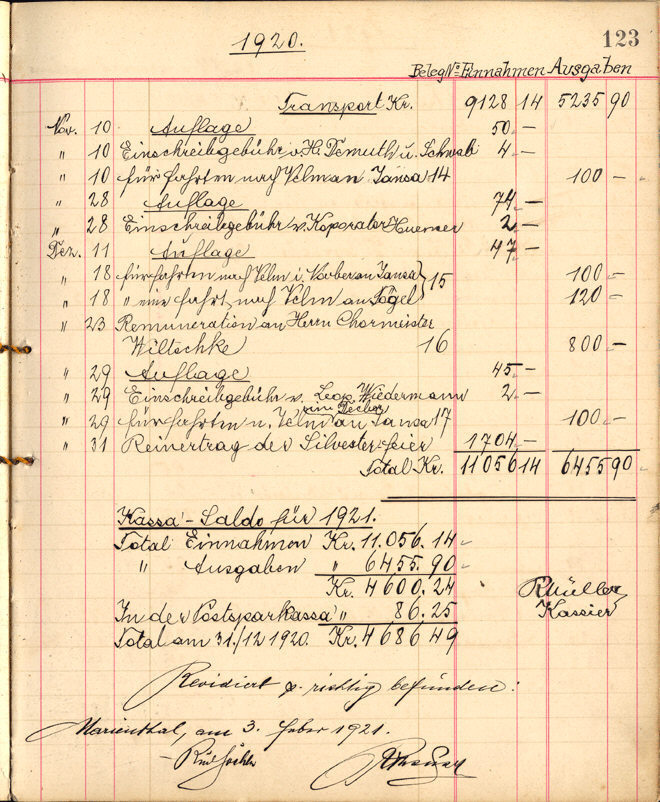 1920.
123
Beleg No Einnahmen Ausgaben
Transport Kr. 9128 14 5235 90
Nov. 10 Auflage 50.—
" 10 Einschreibgebühr v. H. Demuth u. Schwab 4.—
" 10 für Fahrten nach Velm an Jansa 14 100 —
" 28 Auflage 74.—
" 28 Einschreibgebühr v. Koporator Huemer 2.—
Dez. 11 Auflage 47.—
" 18 für Fahrten nach Velm i. Vorber an Jansa } 15 100 —
" 18 " eine Fahrt nach Velm an Fögel 120 —
" 23 Remuneration an Herrn Chormeister
Wiltschke 16 800 —
" 29 Auflage 45.—
" 29 Einschreibgebühr v. Leop. Wiedermann 2.—
" 29 für Fahrten n. Velm an Jansa 17 100 —
" 31 Reinertrag der Silvesterfeier 1704.—
Total Kr. 11056 14 6455 90
Kassa-Saldo für 1921.
Total Einnahmen Kr. 11.056.14
" Ausgaben " 6455.90
Kr. 4600.24
In der Postsparkassa " 86.25
Total am 31./12 1920. Kr. 4686 49
RMüller
Kassier
Revidiert & richtig befunden:
Marienthal, am 3. Feber 1921.